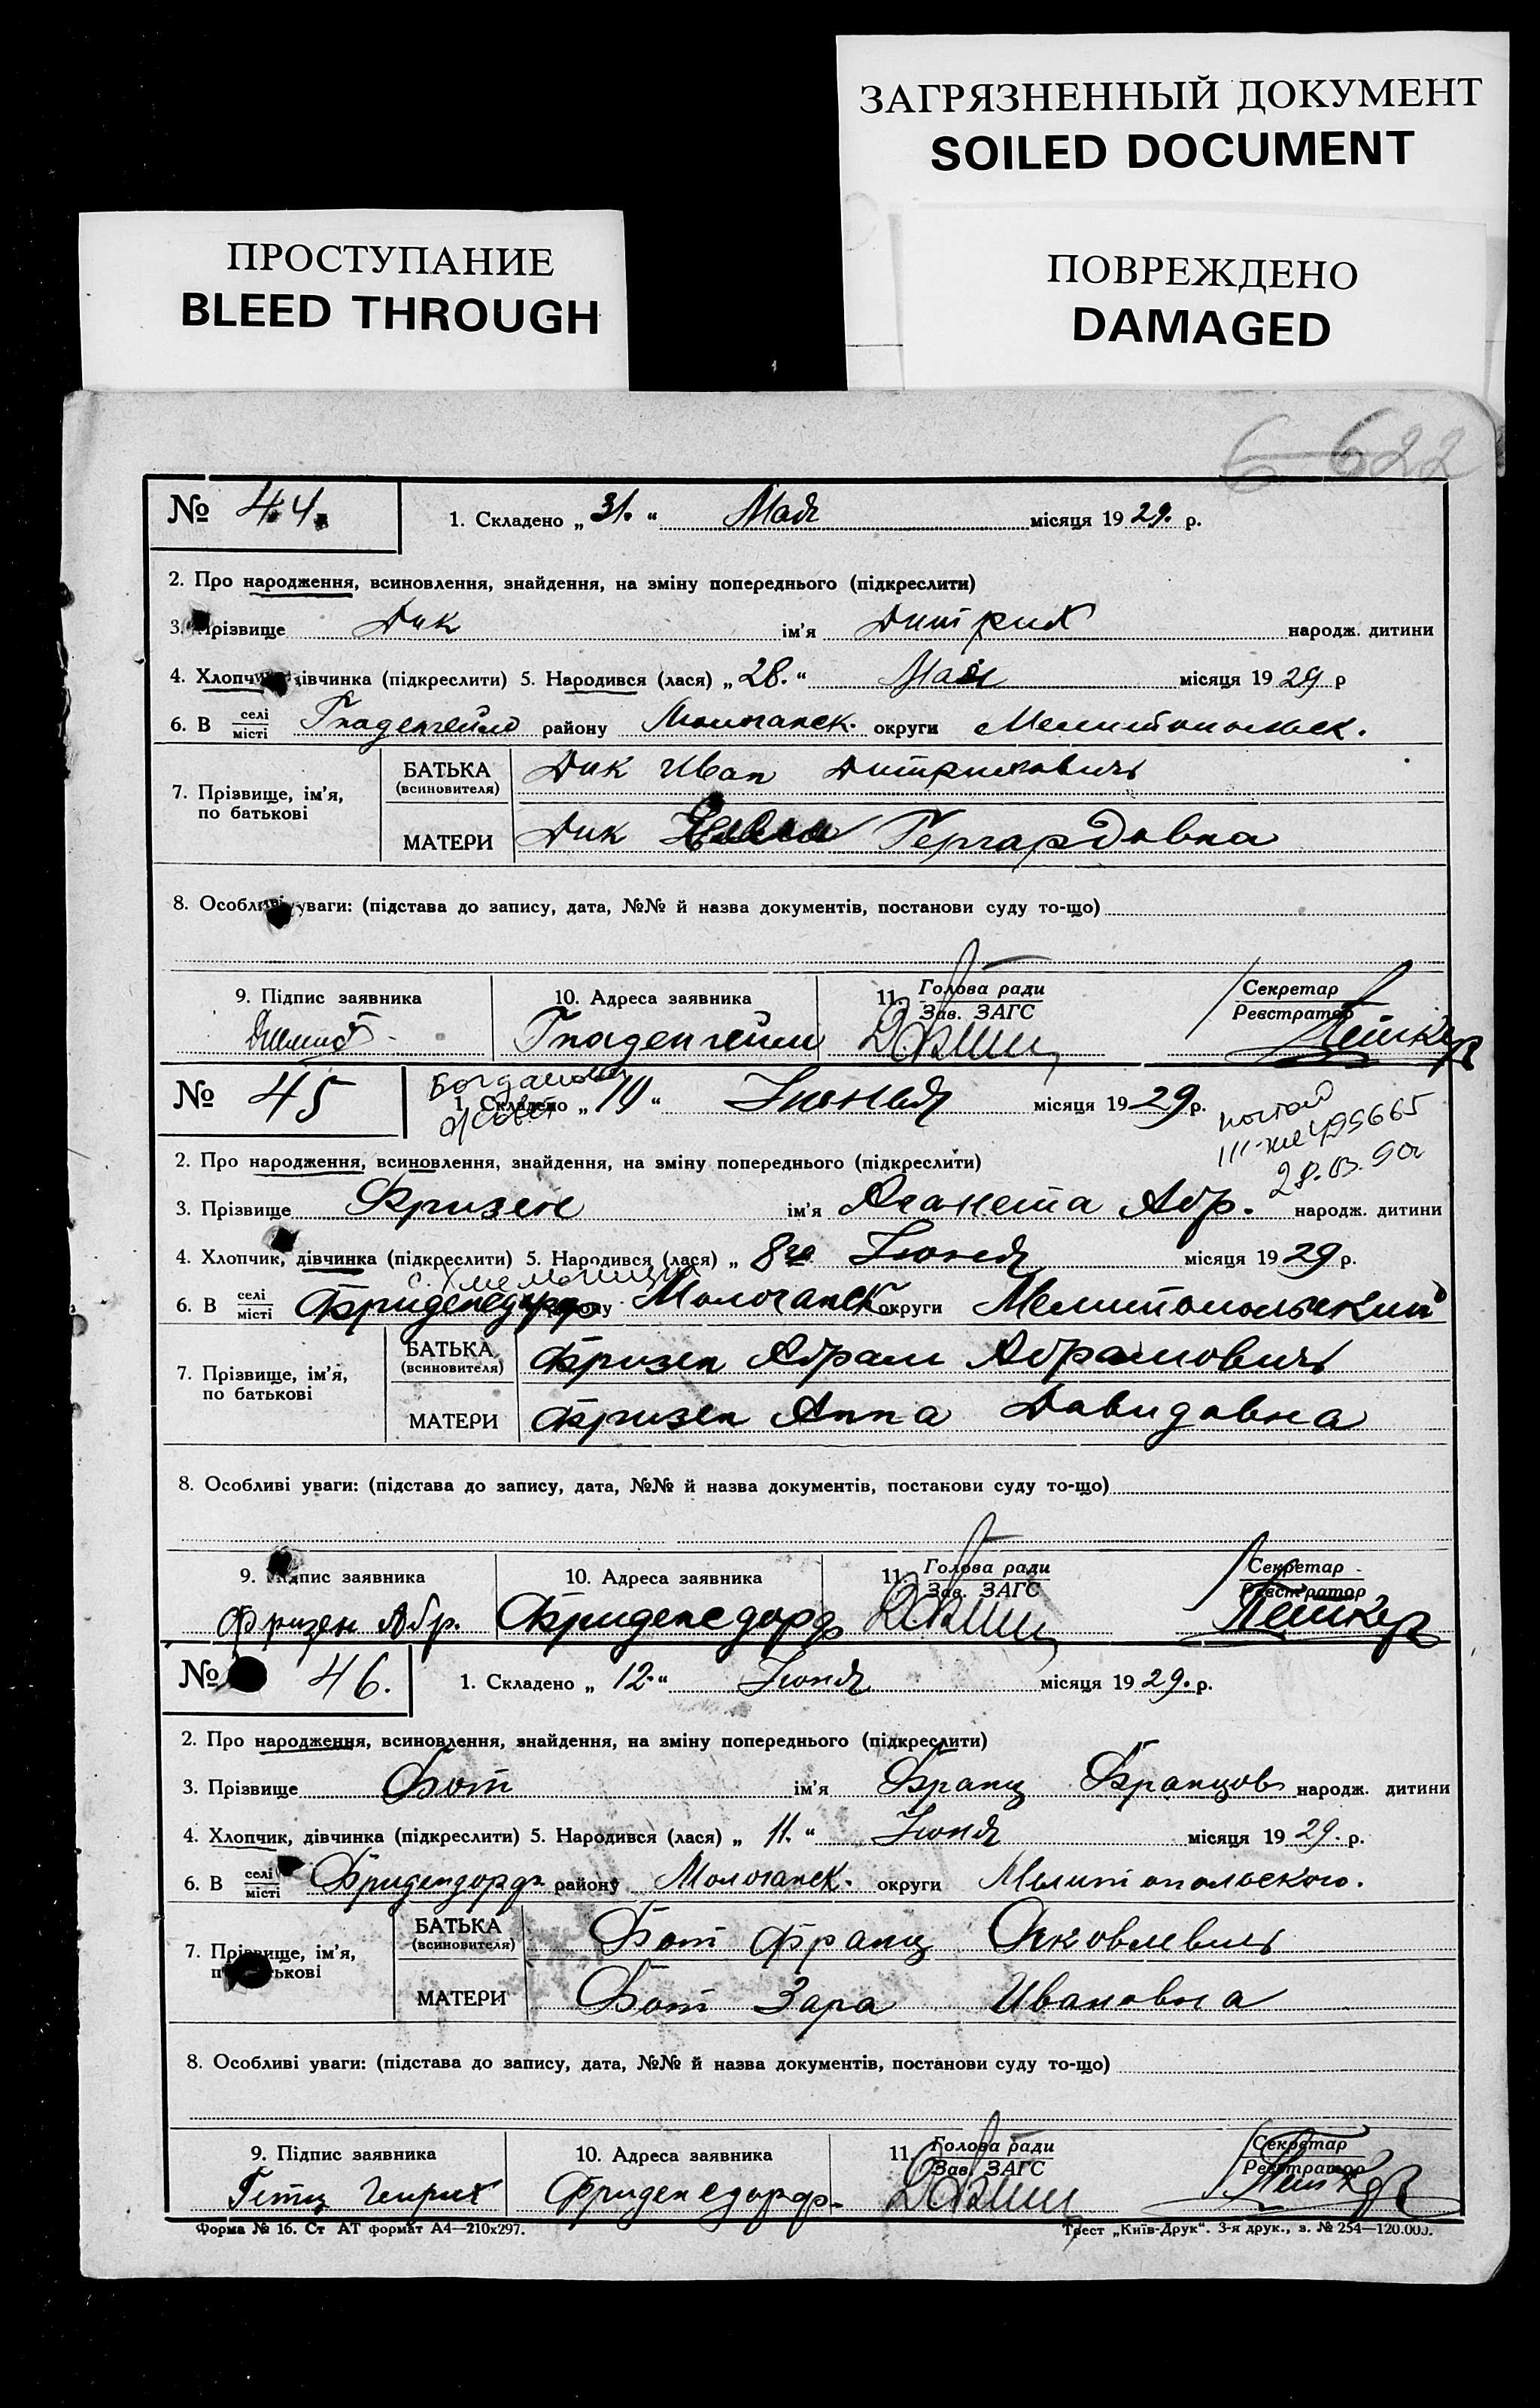 ЗАГРЯЗНЕННЫЙ ДОКУМЕНТ
SOILED DOCUMENT
ПРОСТУПАНИЕ
BLEED THROUGH
ПОВРЕЖДЕНО
DAMAGED
6 622
№ 44. 1. Складено „31.“ Мая місяця 1929. р.
2. Про народження, всиновлення, знайдення, на зміну попереднього (підкреслити)
3. Прізвище Дик ім'я Дитрих народж. дитини
4. Хлопчик, дівчинка (підкреслити) 5. Народився (лася) „28.“ Мая місяця 1929 р
6. В селі/місті Гнаденгейм району Молочанск. округи Мелитопольск.
7. Прізвище, ім'я, по батькові
БАТЬКА (всиновителя) Дик Иван Дитрихович
МАТЕРИ Дик Гергардовна
8. Особливі уваги: (підстава до запису, дата, №№ й назва документів, постанови суду то-що)
9. Підпис заявника 10. Адреса заявника 11. Голова ради/Зав. ЗАГС Секретар/Реєстратор
Гнаденгейм
№ 45 1. Складено „19“ Июня місяця 1929 р.
28.03.90г
2. Про народження, всиновлення, знайдення, на зміну попереднього (підкреслити)
3. Прізвище Фризен ім'я Аганета Абр. народж. дитини
4. Хлопчик, дівчинка (підкреслити) 5. Народився (лася) „8го Июня місяця 1929 р.
6. В селі/місті Фриденсдорф району Молочанск округи Мелитопольский
7. Прізвище, ім'я, по батькові
БАТЬКА (всиновителя) Фризен Абрам Абрамович
МАТЕРИ Фризен Анна Давидовна
8. Особливі уваги: (підстава до запису, дата, №№ й назва документів, постанови суду то-що)
9. Підпис заявника 10. Адреса заявника 11. Голова ради/Зав. ЗАГС Секретар/Реєстратор
Фризен Абр. Фриденсдорф
№ 46. 1. Складено „12.“ Июня місяця 1929. р.
2. Про народження, всиновлення, знайдення, на зміну попереднього (підкреслити)
3. Прізвище Бот ім'я Франц Францов народж. дитини
4. Хлопчик, дівчинка (підкреслити) 5. Народився (лася) „11.“ Июня місяця 1929. р.
6. В селі/місті Фридендорф району Молочанск. округи Мелитопольского.
7. Прізвище, ім'я, по батькові
БАТЬКА (всиновителя) Бот Франц Яковлевич
МАТЕРИ Бот Зара Ивановна
8. Особливі уваги: (підстава до запису, дата, №№ й назва документів, постанови суду то-що)
9. Підпис заявника 10. Адреса заявника 11. Голова ради/Зав. ЗАГС Секретар/Реєстратор
Фриденсдорф.
Форма № 16. Ст АТ формат А4—210х297. Трест „Київ-Друк“. 3-я друк., з. № 254—120.000.